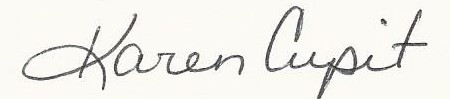 Karen Cupit